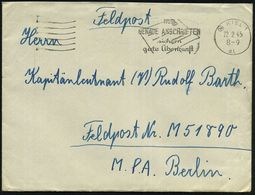 Feldpost
NUR
GENAUE ANSCHRIFTEN
sichern
gute Überkunft
22.2.45
8-9
Herrn
Kapitänleutnant (V) Rudolf Barth.
Feldpost Nr. M51890
M.P.A. Berlin.